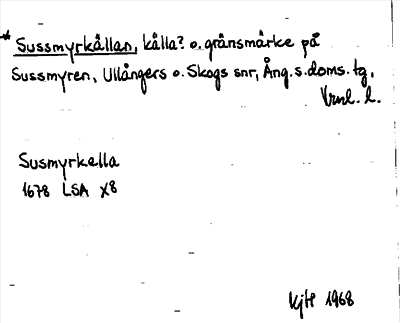 * Sussmyrkällan, källa? o. gränsmärke på
Sussmyren, Ullångers o. Skogs snr, Ång. s. doms. tg,
Vrml. l.
Susmyrkella
1678 LSA X8
KjH 1968